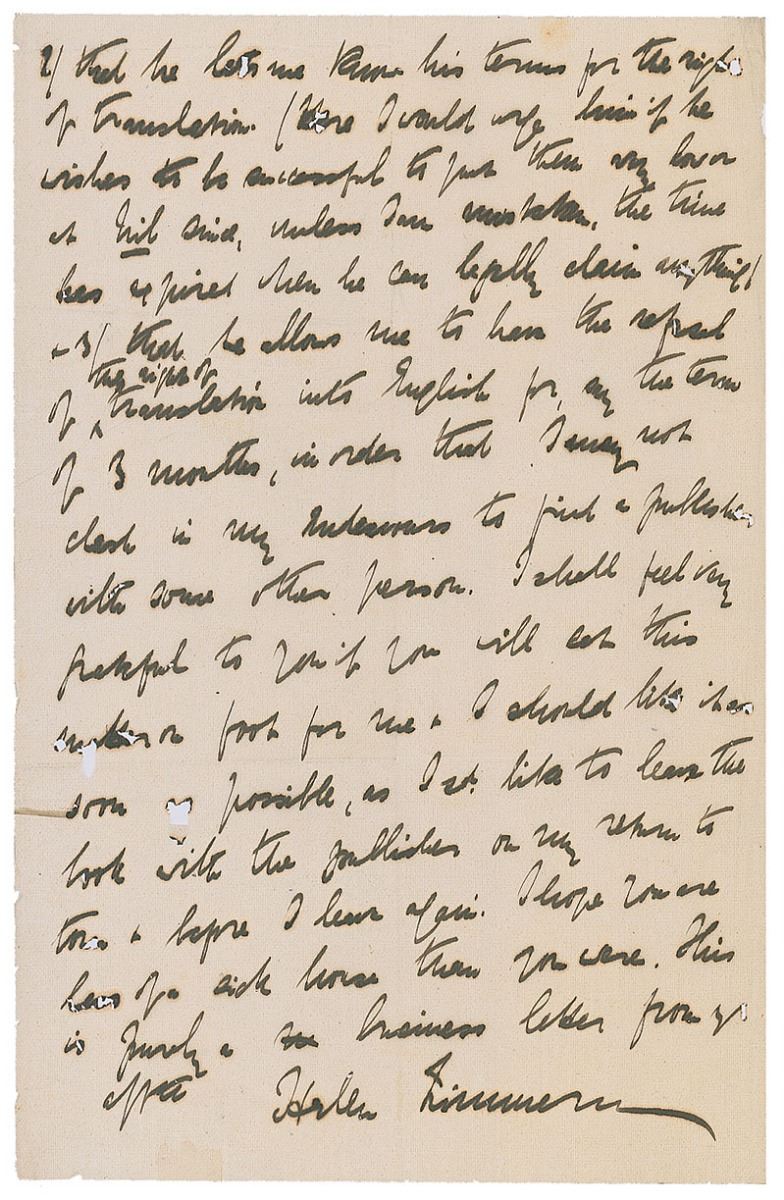 2/ that he lets me know his terms for the right
of translation. (Here I would urge him if he
wishes to be successful to put them very low or
at nil since, unless I am mistaken, the time
has expired when he can legally claim anything)
+ 3/ that he allows me to have the refusal
of the right of translation into English for, say the term
of 3 months, in order that I may not
clash in my endeavours to find a publisher
with some other person. I shall feel very
grateful to you if you will set this
matter on foot for me + I should like it as
soon as possible, as I sd. like to leave the
book with the publisher on my return to
town + before I leave again. I hope you are
less of a sick house than you were. This
is purely a business letter from yr
affte Helen Zimmern